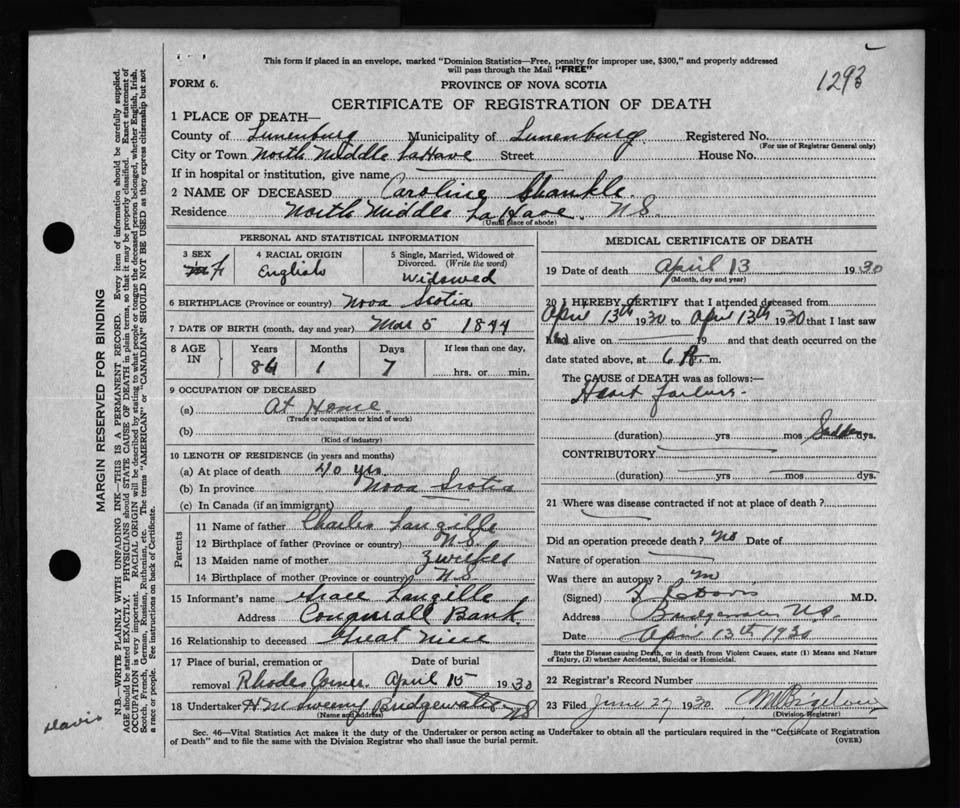 This form if placed in an envelope, marked "Dominion Statistics—Free, penalty for improper use, $300," and properly addressed
will pass through the Mail "FREE"
1293
FORM 6.
PROVINCE OF NOVA SCOTIA
CERTIFICATE OF REGISTRATION OF DEATH
1 PLACE OF DEATH—
County of Lunenburg Municipality of Lunenburg Registered No.
(For use of Registrar General only)
City or Town North Middle LaHave Street House No.
If in hospital or institution, give name
2 NAME OF DECEASED Caroline Shankle.
Residence North Middle LaHave. NS.
(Usual place of abode)
PERSONAL AND STATISTICAL INFORMATION
3 SEX
4 RACIAL ORIGIN
English
5 Single, Married, Widowed or
Divorced. (Write the word)
Widowed
6 BIRTHPLACE (Province or country) Nova Scotia
7 DATE OF BIRTH (month, day and year) Mar 5 1844
8 AGE
IN
Years Months Days If less than one day,
1 7 hrs. or min.
9 OCCUPATION OF DECEASED
(a) At Home.
(Trade or occupation or kind of work)
(b)
(Kind of industry)
10 LENGTH OF RESIDENCE (in years and months)
(a) At place of death 40 yrs
(b) In province Nova Scotia
(c) In Canada (if an immigrant)
Parents
11 Name of father Charles Langille
12 Birthplace of father (Province or country) N.S.
13 Maiden name of mother
14 Birthplace of mother (Province or country) N.S.
15 Informant's name Grace Langille
Address Conquerall Bank.
16 Relationship to deceased Great Niece
17 Place of burial, cremation or
removal Rhodes Corner.
Date of burial
April 15 1930
18 Undertaker HM Sweeny Bridgewater NS
(Name and address)
MEDICAL CERTIFICATE OF DEATH
19 Date of death April 13 1930
(Month, day and year)
20 I HEREBY CERTIFY that I attended deceased from
April 13th 1930 to April 13th 1930 that I last saw
alive on 19 and that death occurred on the
date stated above, at 6 A. m.
The CAUSE of DEATH was as follows:—
Heart failure.
(duration) yrs mos Sudden dys.
CONTRIBUTORY
(duration) yrs mos dys.
21 Where was disease contracted if not at place of death?
Did an operation precede death? No Date of
Nature of operation
Was there an autopsy? no
(Signed) Davis M.D.
Address Bridgewater NS.
Date April 13th 1930
State the Disease causing Death, or in death from Violent Causes, state (1) Means and Nature
of Injury, (2) whether Accidental, Suicidal or Homicidal.
22 Registrar's Record Number
23 Filed June 27 1930
(Division Registrar)
Sec. 46—Vital Statistics Act makes it the duty of the Undertaker or person acting as Undertaker to obtain all the particulars required in the "Certificate of Registration
of Death" and to file the same with the Division Registrar who shall issue the burial permit.
(OVER)
MARGIN RESERVED FOR BINDING
N.B.—WRITE PLAINLY WITH UNFADING INK—THIS IS A PERMANENT RECORD. Every item of information should be carefully supplied.
AGE should be stated EXACTLY. PHYSICIANS should STATE CAUSE OF DEATH in plain terms, so that it may be properly classified. Exact statement of
OCCUPATION is very important. RACIAL ORIGIN will be described by stating to what people or tongue the deceased person belonged, whether English, Irish,
Scotch, French, German, Russian, Ruthenian, etc. The terms "AMERICAN" or "CANADIAN" SHOULD NOT BE USED as they express citizenship but not
a race or people. See instructions on back of Certificate.
Davis